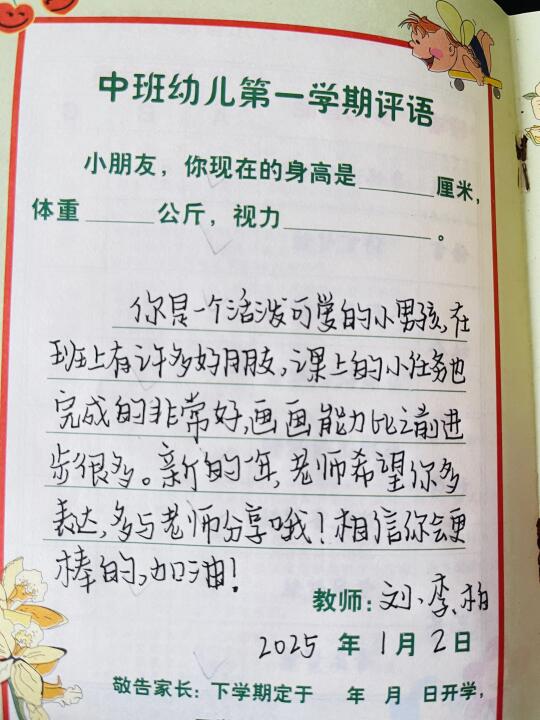 中班幼儿第一学期评语
小朋友，你现在的身高是______厘米，
体重______公斤，视力____________。
你是一个活泼可爱的小男孩，在
班上有许多好朋友，课上的小任务也
完成的非常好，画画能力比之前进
步很多。新的一年，老师希望你多
表达，多与老师分享哦！相信你会更
棒的，加油！
教师：刘、李、柏
2025 年 1 月 2 日
敬告家长：下学期定于 年 月 日开学，